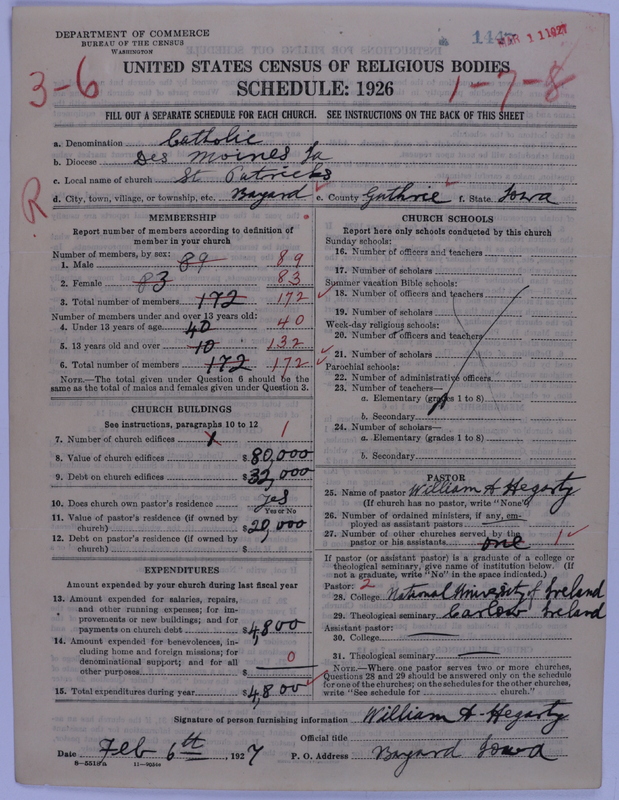 DEPARTMENT OF COMMERCE
BUREAU OF THE CENSUS
WASHINGTON
144
MAR 11 1927
UNITED STATES CENSUS OF RELIGIOUS BODIES
SCHEDULE: 1926
3-6
1-7-8
FILL OUT A SEPARATE SCHEDULE FOR EACH CHURCH. SEE INSTRUCTIONS ON THE BACK OF THIS SHEET
a. Denomination Catholic
b. Diocese Des Moines Ia
c. Local name of church St Patricks
d. City, town, village, or township, etc. Bayard e. County Guthrie f. State Iowa
R
MEMBERSHIP
Report number of members according to definition of member in your church
Number of members, by sex:
1. Male 89 89
2. Female 83 83
3. Total number of members 172 172
Number of members under and over 13 years old:
4. Under 13 years of age 40 40
5. 13 years old and over 10 132
6. Total number of members 172 172
NOTE.—The total given under Question 6 should be the same as the total of males and females given under Question 3.
CHURCH BUILDINGS
See instructions, paragraphs 10 to 12
7. Number of church edifices 1 1
8. Value of church edifices $80,000
9. Debt on church edifices $32,000
10. Does church own pastor's residence Yes
Yes or No
11. Value of pastor's residence (if owned by church) $20,000
12. Debt on pastor's residence (if owned by church) $
EXPENDITURES
Amount expended by your church during last fiscal year
13. Amount expended for salaries, repairs, and other running expenses; for improvements or new buildings; and for payments on church debt $4,800
14. Amount expended for benevolences, including home and foreign missions; for denominational support; and for all other purposes $ 0
15. Total expenditures during year $4,800
CHURCH SCHOOLS
Report here only schools conducted by this church
Sunday schools:
16. Number of officers and teachers
17. Number of scholars
Summer vacation Bible schools:
18. Number of officers and teachers
19. Number of scholars
Week-day religious schools:
20. Number of officers and teachers
21. Number of scholars
Parochial schools:
22. Number of administrative officers
23. Number of teachers—
a. Elementary (grades 1 to 8)
b. Secondary
24. Number of scholars—
a. Elementary (grades 1 to 8)
b. Secondary
PASTOR
25. Name of pastor William A Hegarty
(If church has no pastor, write "None")
26. Number of ordained ministers, if any, employed as assistant pastors
27. Number of other churches served by the pastor or his assistants one 1
If pastor (or assistant pastor) is a graduate of a college or theological seminary, give name of institution below. (If not a graduate, write "No" in the space indicated.)
Pastor: 2
28. College National University of Ireland
29. Theological seminary Carlow Ireland
Assistant pastor:
30. College
31. Theological seminary
NOTE.—Where one pastor serves two or more churches, Questions 28 and 29 should be answered only on the schedule for one of the churches; on the schedules for the other churches, write "See schedule for church."
Signature of person furnishing information William A Hegarty
Official title
Date Feb 6th, 1927 P. O. Address Bayard Iowa